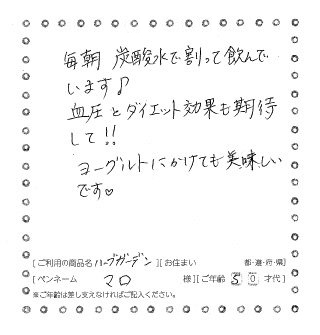 毎朝 炭酸水で割って飲んで
います♪
血圧とダイエット効果も期待
して!!
ヨーグルトにかけても美味しい
です♡
[ご利用の商品名 ハーブガーデン ][お住まい 都・道・府・県]
[ペンネーム マロ 様][ご年齢 50 才代]
※ご年齢は差し支えなければご記入ください。